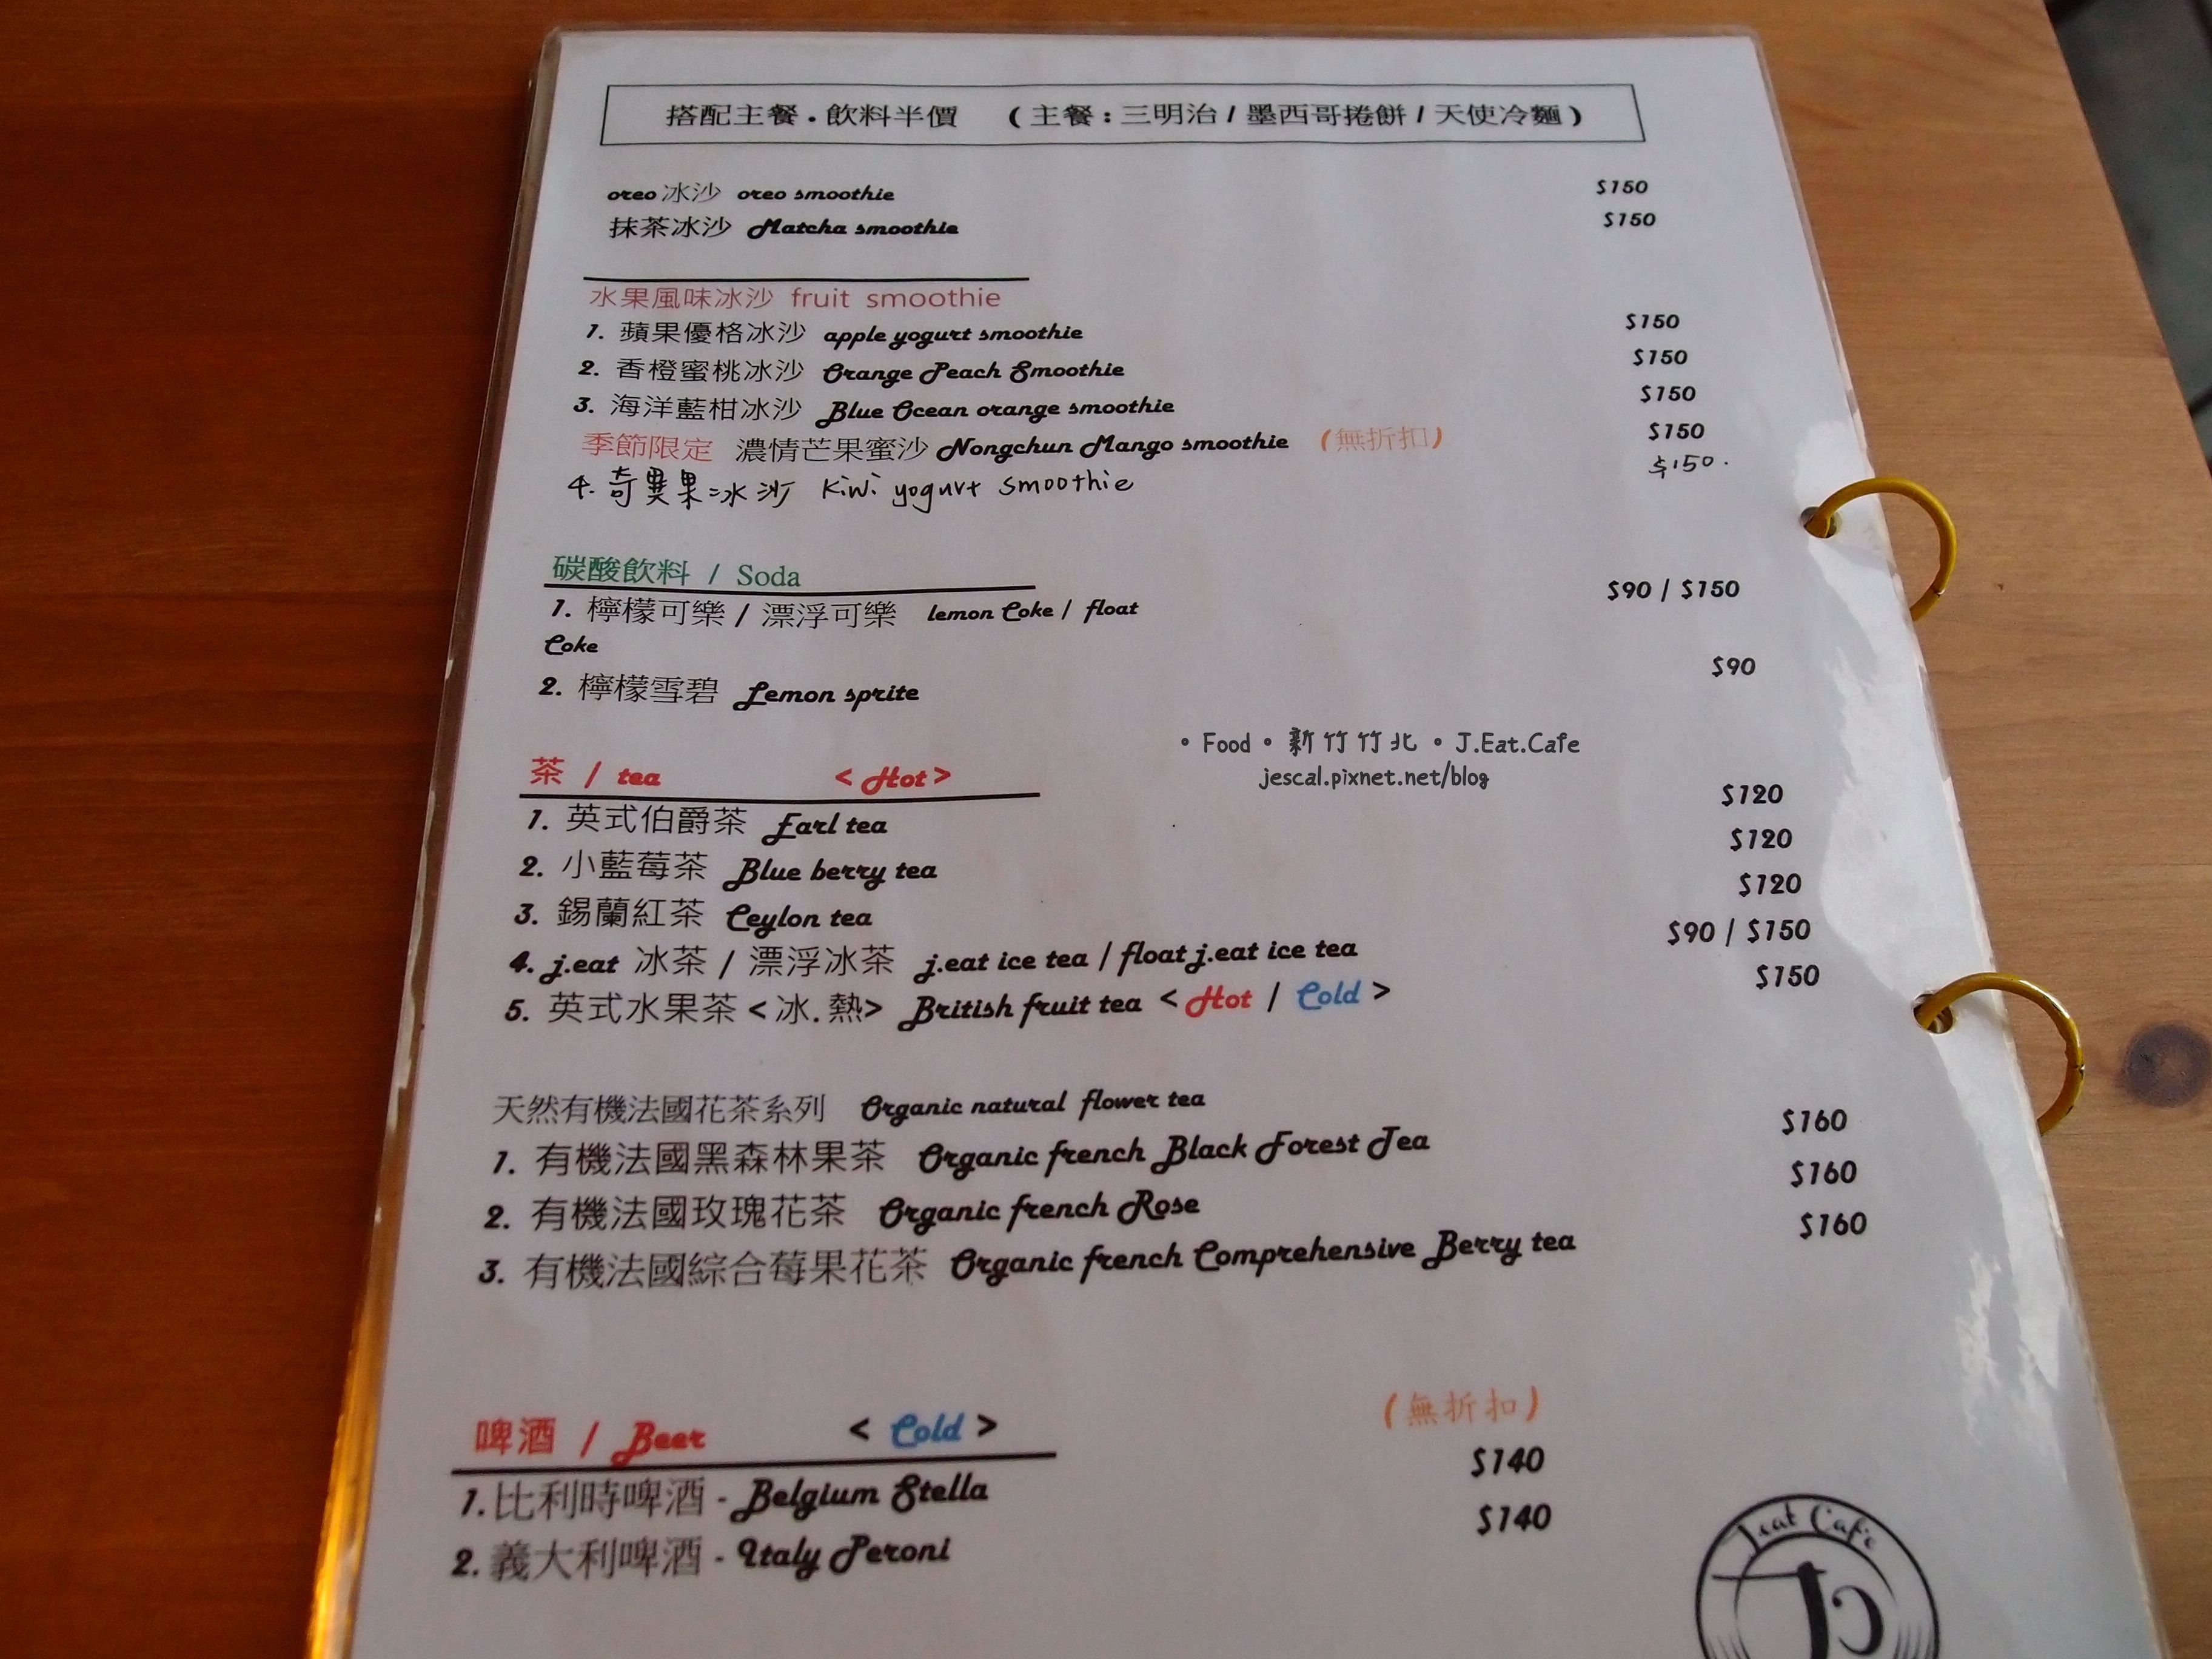 搭配主餐．飲料半價 （主餐：三明治 / 墨西哥捲餅 / 天使冷麵）
oreo 冰沙 oreo smoothie $150
抹茶冰沙 Matcha smoothie $150
水果風味冰沙 fruit smoothie
1. 蘋果優格冰沙 apple yogurt smoothie $150
2. 香橙蜜桃冰沙 Orange Peach Smoothie $150
3. 海洋藍柑冰沙 Blue Ocean orange smoothie $150
季節限定 濃情芒果蜜沙 Nongchun Mango smoothie （無折扣） $150
4. 奇異果冰沙 kiwi yogurt smoothie $150.
碳酸飲料 / Soda
1. 檸檬可樂 / 漂浮可樂 lemon Coke / float $90 / $150
Coke
2. 檸檬雪碧 Lemon sprite $90
。Food。新竹竹北。J.Eat.Cafe
jescal.pixnet.net/blog
茶 / tea < Hot >
1. 英式伯爵茶 Earl tea $120
2. 小藍莓茶 Blue berry tea $120
3. 錫蘭紅茶 Ceylon tea $120
4. j.eat 冰茶 / 漂浮冰茶 j.eat ice tea / float j.eat ice tea $90 / $150
5. 英式水果茶 < 冰.熱> British fruit tea < Hot / Cold > $150
天然有機法國花茶系列 Organic natural flower tea
1. 有機法國黑森林果茶 Organic french Black Forest Tea $160
2. 有機法國玫瑰花茶 Organic french Rose $160
3. 有機法國綜合莓果花茶 Organic french Comprehensive Berry tea $160
啤酒 / Beer < Cold > （無折扣）
1.比利時啤酒 - Belgium Stella $140
2.義大利啤酒 - Italy Peroni $140
J.eat Cafe